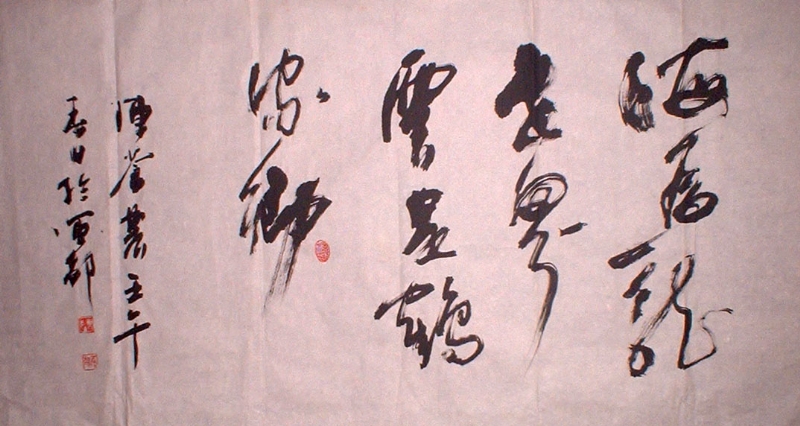 海為龍
世界
雲是鶴
家鄉
壬午
春日於都